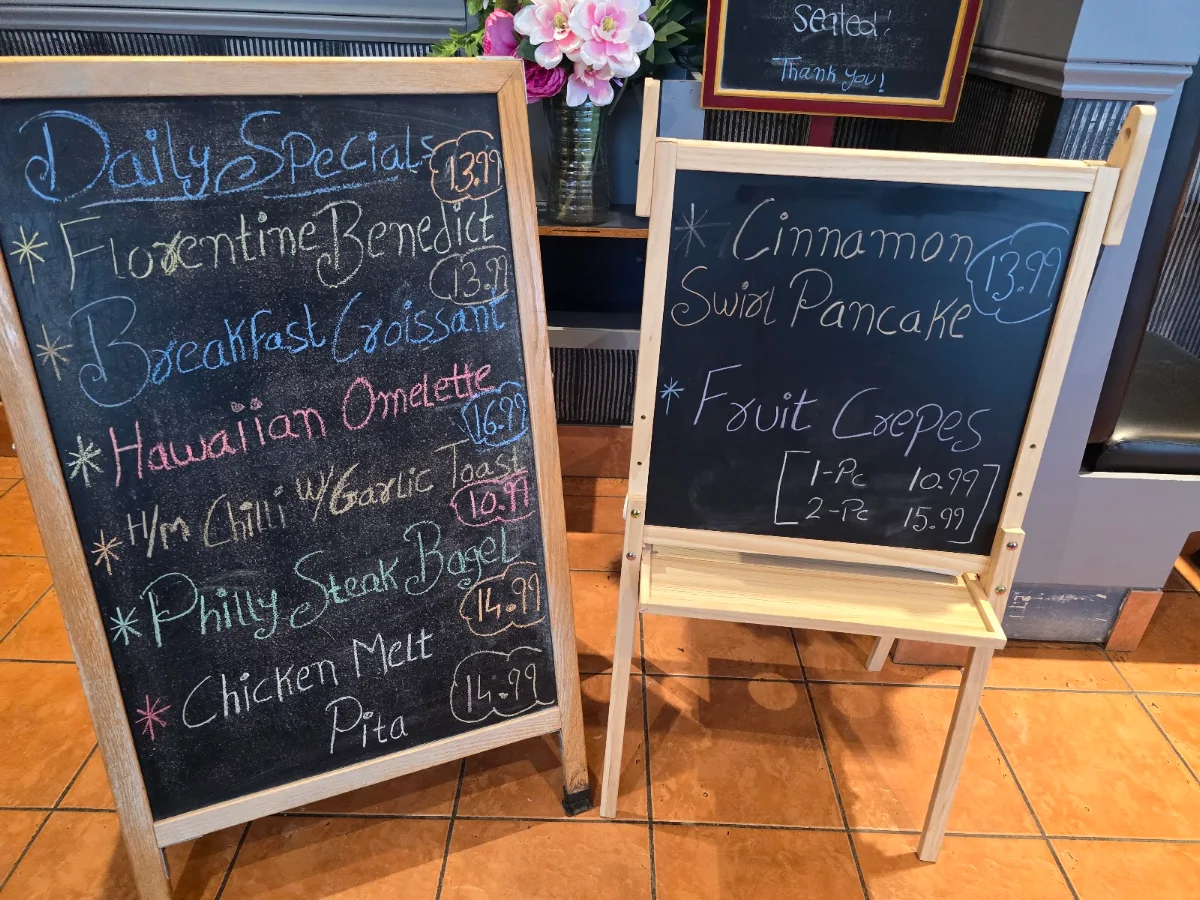 Seated!
Thank you!
Daily Specials
13.99
* Florentine Benedict
13.99
* Breakfast Croissant
* Hawaiian Omelette
16.99
* H/m Chilli w/Garlic Toast
10.99
* Philly Steak Bagel
14.99
* Chicken Melt
Pita
14.99
* Cinnamon
13.99
Swirl Pancake
* Fruit Crepes
[1-Pc 10.99]
[2-Pc 15.99]